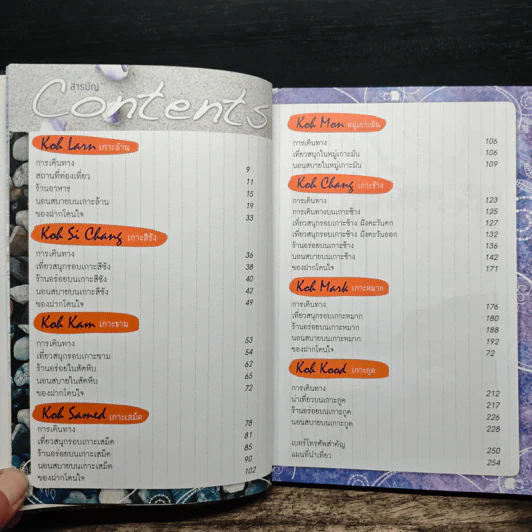 สารบัญ
Contents
Koh Larn เกาะล้าน
การเดินทาง 9
สถานที่ท่องเที่ยว 11
ร้านอาหาร 15
นอนสบายบนเกาะล้าน 19
ของฝากโดนใจ 33
Koh Si Chang เกาะสีชัง
การเดินทาง 36
เที่ยวสนุกรอบเกาะสีชัง 38
ร้านอร่อยบนเกาะสีชัง 40
นอนสบายบนเกาะสีชัง 42
ของฝากโดนใจ 49
Koh Kam เกาะขาม
การเดินทาง 53
เที่ยวสนุกรอบเกาะขาม 54
ร้านอร่อยในสัตหีบ 62
นอนสบายในสัตหีบ 65
ของฝากโดนใจ 72
Koh Samed เกาะเสม็ด
การเดินทาง 78
เที่ยวสนุกรอบเกาะเสม็ด 81
ร้านอร่อยบนเกาะเสม็ด 85
นอนสบายบนเกาะเสม็ด 90
ของฝากโดนใจ 102
Koh Mon หมู่เกาะมัน
การเดินทาง 106
เที่ยวสนุกในหมู่เกาะมัน 106
นอนสบายในหมู่เกาะมัน 109
Koh Chang เกาะช้าง
การเดินทาง 123
การเดินทางบนเกาะช้าง 125
เที่ยวสนุกรอบเกาะช้าง ฝั่งตะวันตก 127
เที่ยวสนุกรอบเกาะช้าง ฝั่งตะวันออก 132
ร้านอร่อยบนเกาะช้าง 136
นอนสบายบนเกาะช้าง 142
ของฝากโดนใจ 171
Koh Mark เกาะหมาก
การเดินทาง 176
เที่ยวสนุกรอบเกาะหมาก 180
ร้านอร่อยบนเกาะหมาก 188
นอนสบายบนเกาะหมาก 192
ของฝากโดนใจ 72
Koh Kood เกาะกูด
การเดินทาง 212
น่าเที่ยวบนเกาะกูด 217
ร้านอร่อยบนเกาะกูด 226
นอนสบายบนเกาะกูด 228
เบอร์โทรศัพท์สำคัญ 250
แผนที่นำเที่ยว 254